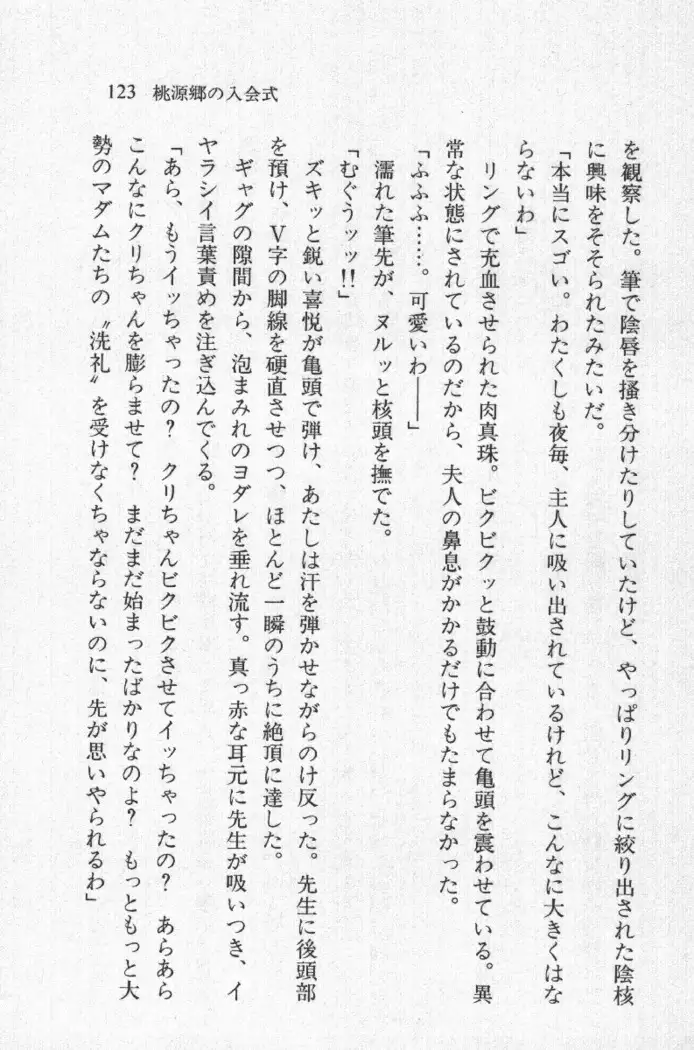 123　桃源郷の入会式
を観察した。筆で陰唇を掻き分けたりしていたけど、やっぱりリングに絞り出された陰核
に興味をそそられたみたいだ。
「本当にスゴい。わたくしも夜毎、主人に吸い出されているけれど、こんなに大きくはな
らないわ」
リングで充血させられた肉真珠。ビクビクッと鼓動に合わせて亀頭を震わせている。異
常な状態にされているのだから、夫人の鼻息がかかるだけでもたまらなかった。
「ふふふ……。可愛いわ――」
濡れた筆先が、ヌルッと核頭を撫でた。
「むぐうッッ!!」
ズキッと鋭い喜悦が亀頭で弾け、あたしは汗を弾かせながらのけ反った。先生に後頭部
を預け、Ｖ字の脚線を硬直させつつ、ほとんど一瞬のうちに絶頂に達した。
ギャグの隙間から、泡まみれのヨダレを垂れ流す。真っ赤な耳元に先生が吸いつき、イ
ヤラシイ言葉責めを注ぎ込んでくる。
「あら、もうイッちゃったの？　クリちゃんビクビクさせてイッちゃったの？　あらあら
こんなにクリちゃんを膨らませて？　まだまだ始まったばかりなのよ？　もっともっと大
勢のマダムたちの〝洗礼〟を受けなくちゃならないのに、先が思いやられるわ」